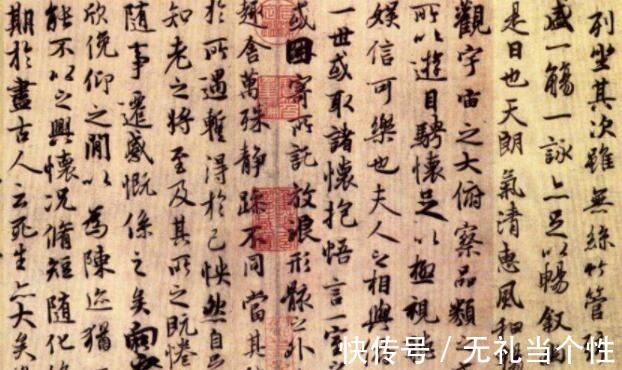 列坐其次雖無絲竹管
盛一觴一詠亦足以暢叙
是日也天朗氣清惠風和
觀宇宙之大俯察品類之
所以遊目騁懷足以極視
娛信可樂也夫人之相與
一世或取諸懷抱悟言一室
或因寄所託放浪形骸之外
趣舍萬殊静躁不同當其
於所遇暫得於己怏然自足
知老之將至及其所之既惓
隨事遷感慨係之矣向
欣俛仰之閒以為陳迹猶
能不以之興懷况脩短随化
期於盡古人云死生亦大矣
快传号 / 无礼当个性